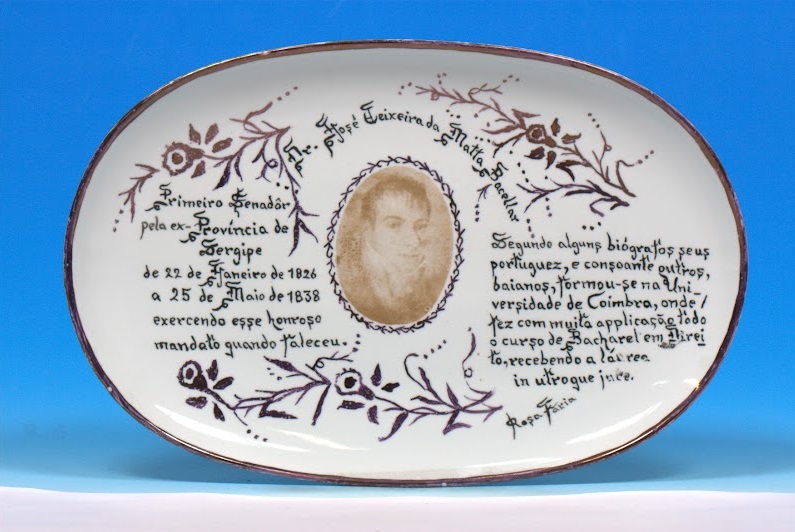 Dr. José Teixeira da Matta Bacellar
Primeiro Senadôr
pela ex-Província de
Sergipe
de 22 de Janeiro de 1826
a 25 de Maio de 1838
exercendo esse honroso
mandato quando faleceu.
Segundo alguns biógrafos seus
portuguez, e consoante outros,
baianos, formou-se na Uni-
versidade de Coimbra, onde
fez com muita applicação todo
o curso de Bacharel em Direi
to, recebendo a laurea
in utroque jure.
Rosa Faria